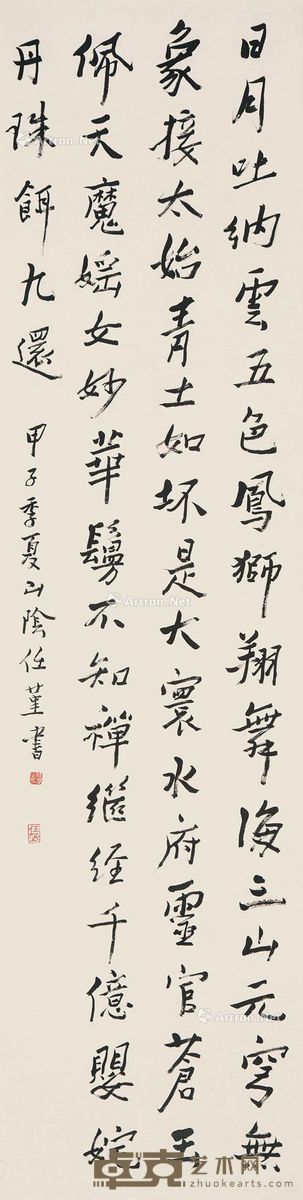 日月吐納雲五色鳳獅翔舞海三山元穹無
象接太始青土如坏是大寰水府靈官蒼玉
佩天魔媱女妙華鬘不知禪繼經千億嬰姹
丹珠餌九還
甲子季夏山陰任堇書
Artron.Net
卓克艺术网
www.zhuokearts.com